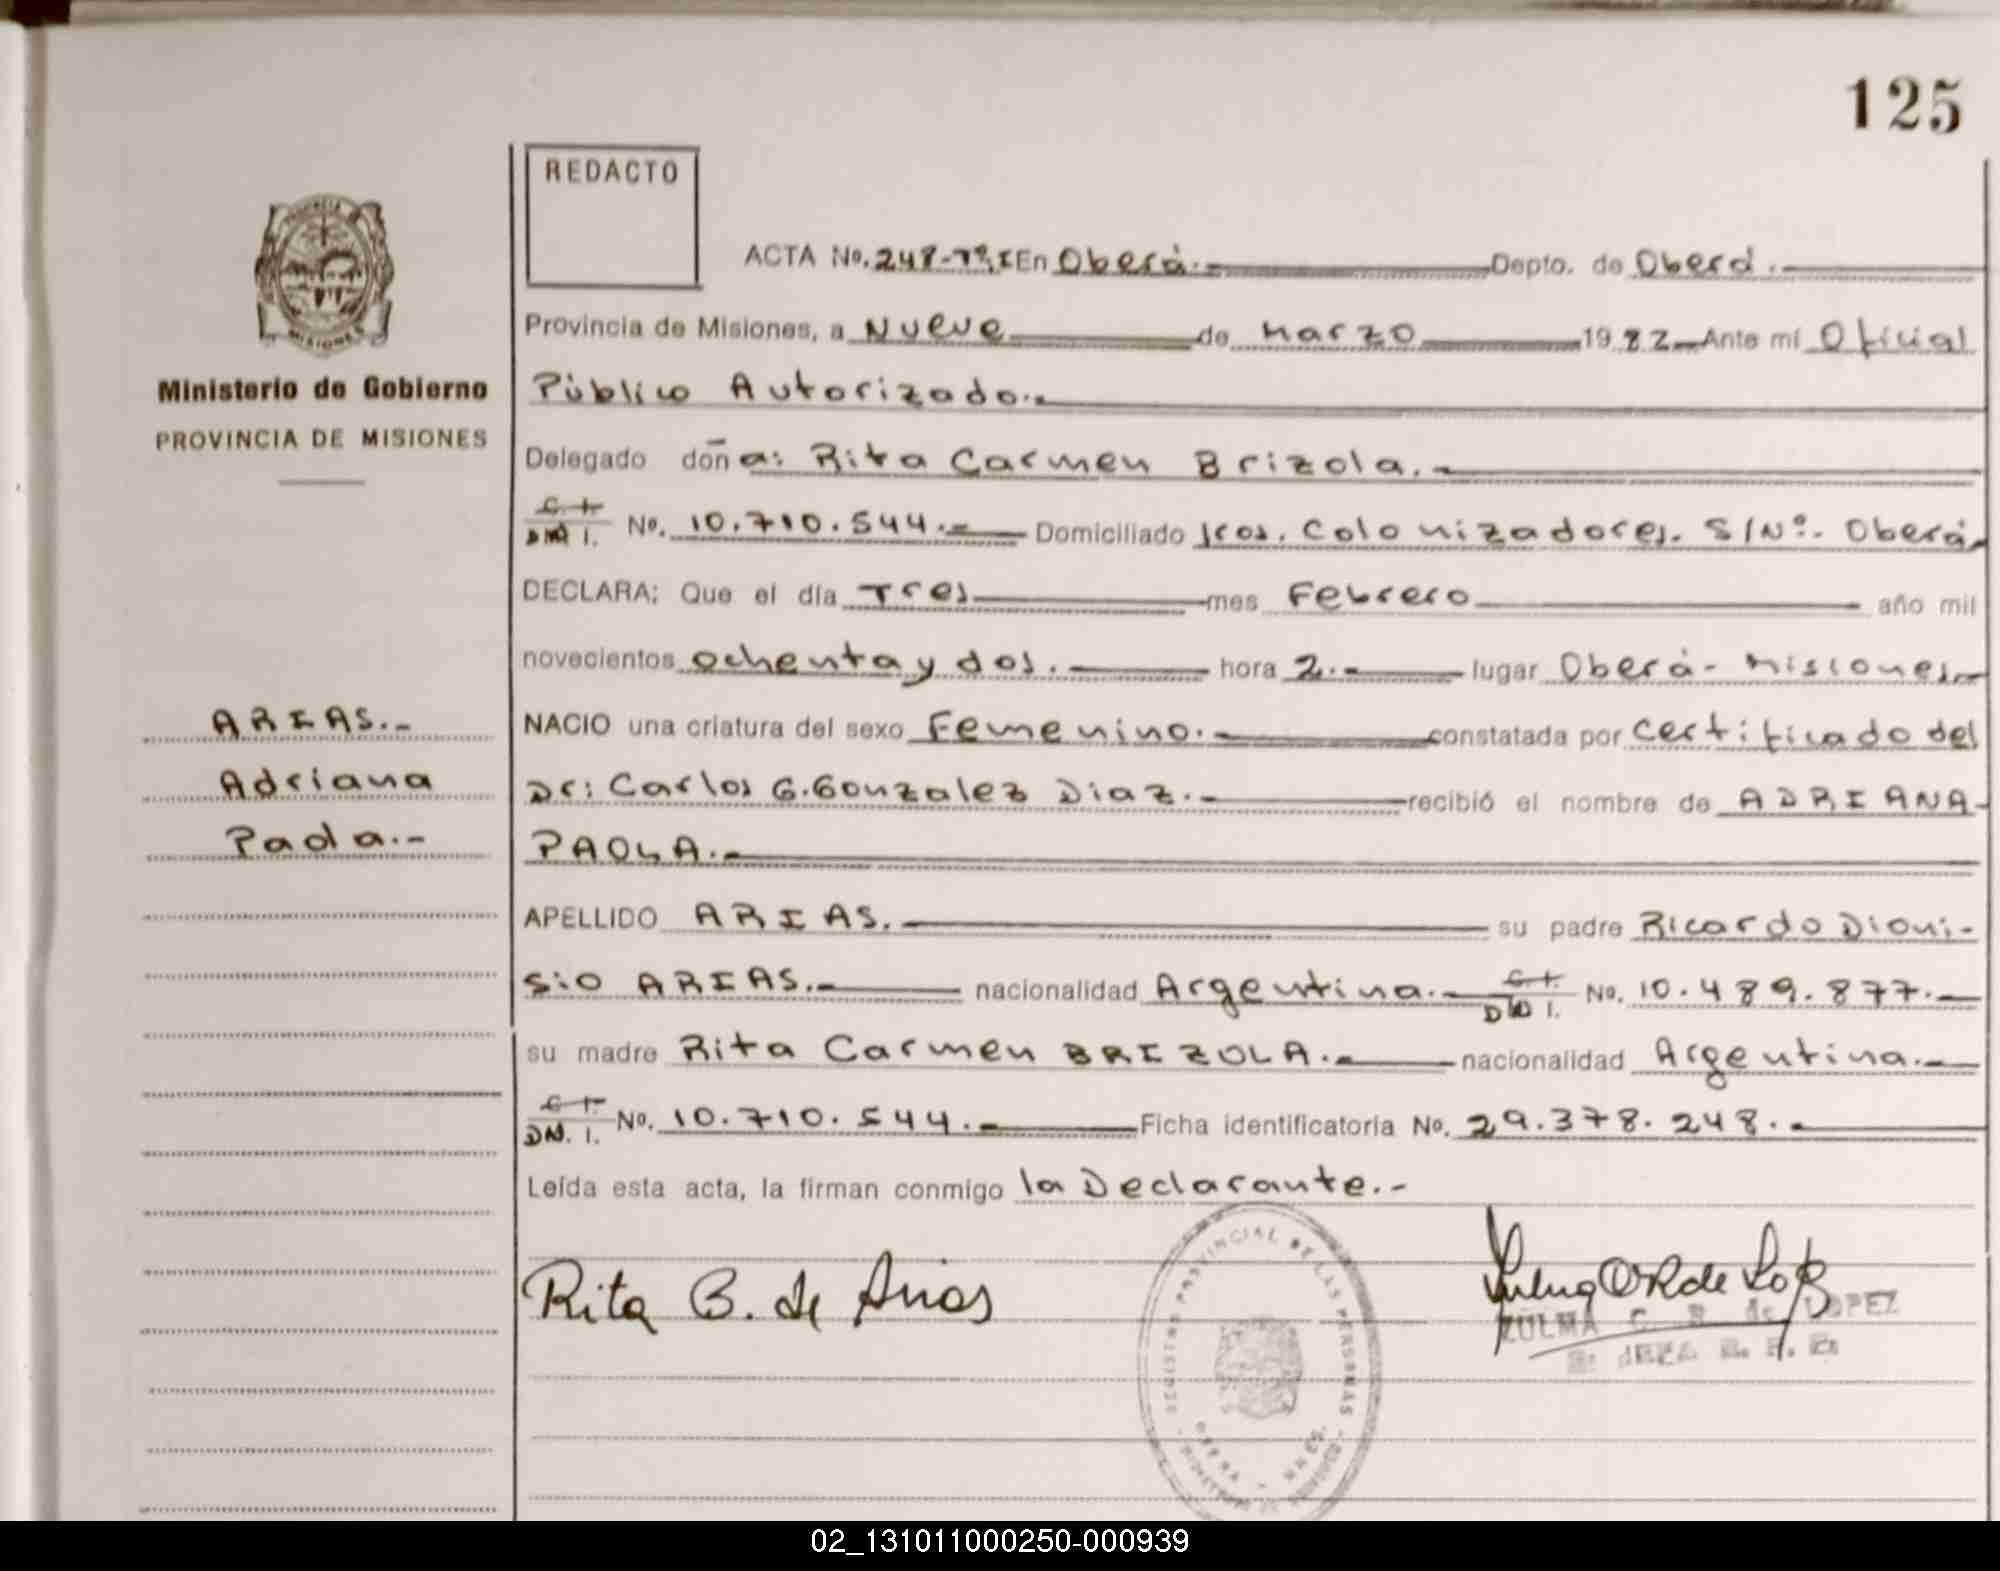 125
REDACTO
ACTA No. 248-Tº I En Oberá.- Depto. de Oberá.-
Provincia de Misiones, a Nueve de Marzo 1982 Ante mí Oficial
Público Autorizado.-
Delegado doña: Rita Carmen Brizola.-
C. I. D N I. No. 10.710.544.- Domiciliado Colonizadores. S/Nº.- Oberá.
DECLARA: Que el día Tres mes Febrero año mil
novecientos ochenta y dos.- hora 2.- lugar Oberá- Misiones.-
NACIO una criatura del sexo Femenino.- constatada por certificado del
Dr: Carlos G. Gonzalez Diaz.- recibió el nombre de ADRIANA-
PAOLA.-
APELLIDO ARIAS.- su padre Ricardo Dioni-
sio ARIAS.- nacionalidad Argentina.- C. I. D N I. No. 10.489.877.-
su madre Rita Carmen BRIZOLA.- nacionalidad Argentina.-
C. I. D N. I. No. 10.710.544.- Ficha identificatoria No. 29.378.248.-
Leída esta acta, la firman conmigo la Declarante.-
Rita B. de Arias
ZULMA C. R. de LOPEZ
PROVINCIA
MISIONES
Ministerio de Gobierno
PROVINCIA DE MISIONES
ARIAS.-
Adriana
Paola.-
PROVINCIAL DE LAS PERSONAS
02_131011000250-000939